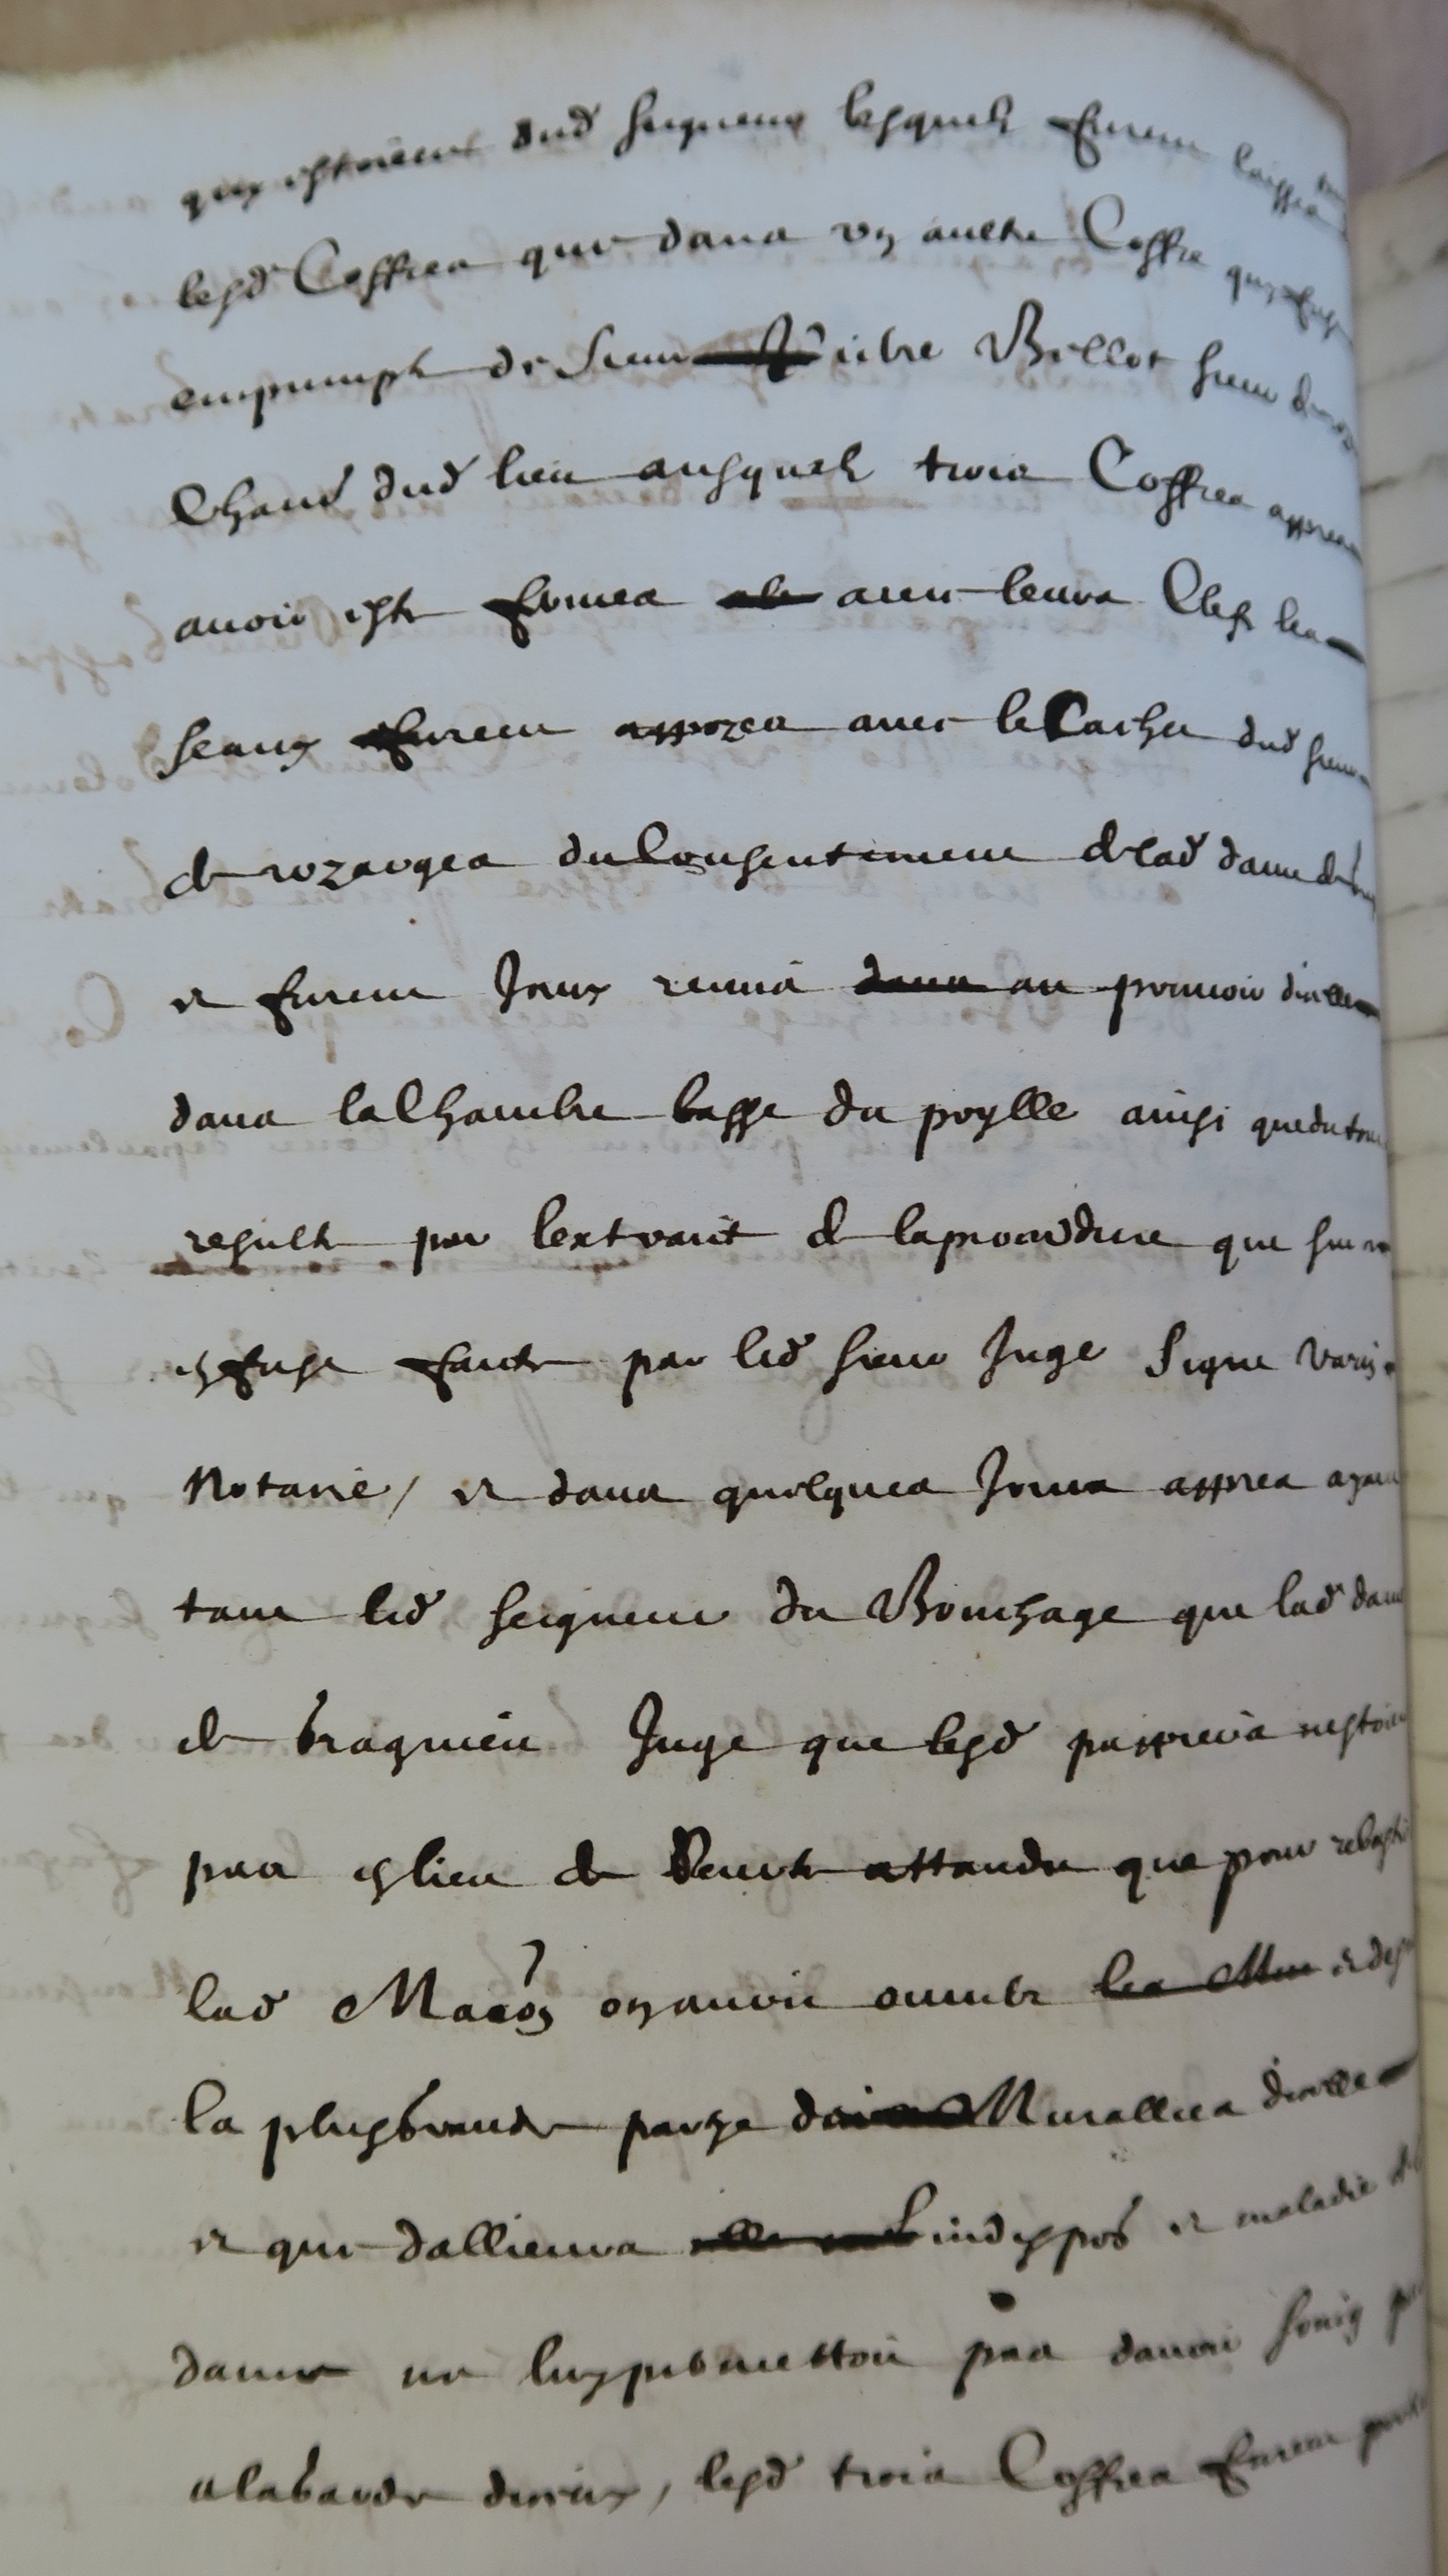 quy estoient dud seigneur lesquels furent laisses
lesd Coffres que dans un aultre Coffre quy fust
emprumpte de Sieur Billot sieur
Chand dud lieu ausquels trois Coffres appres
avoir este fermes avec leurs Clefs les
seaux furent appozes avec le Cachet dud sieur
de rozarges du Consentement de lad dame de
et furent tous remis au pouvoir dicelle
dans la Chambre basse du poylle ainsi que du tout
resulte par lextraict de la procedure que sur
en fust faicte par led sieur Juge Signe
Notaire / et dans quelques Jours appres
tant led seigneur du Bouchage que lad dame
de bragnieu Juge que lesd pappiers nestoient
pas en lieu de seurte attandu que pour rebastir
lad Maion on avoit ouvert
la plus grande partye Murallies dicelle
et que dallieurs lindispo et maladie de
dame ne luy permettoit pas davoir soing
a la garde diceux, lesd trois Coffres furent